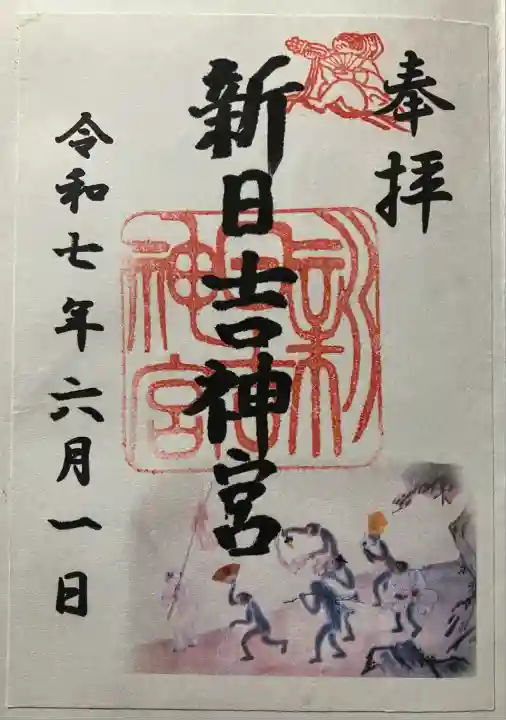 奉拝
新日吉神宮
令和七年六月一日
新日吉神宮